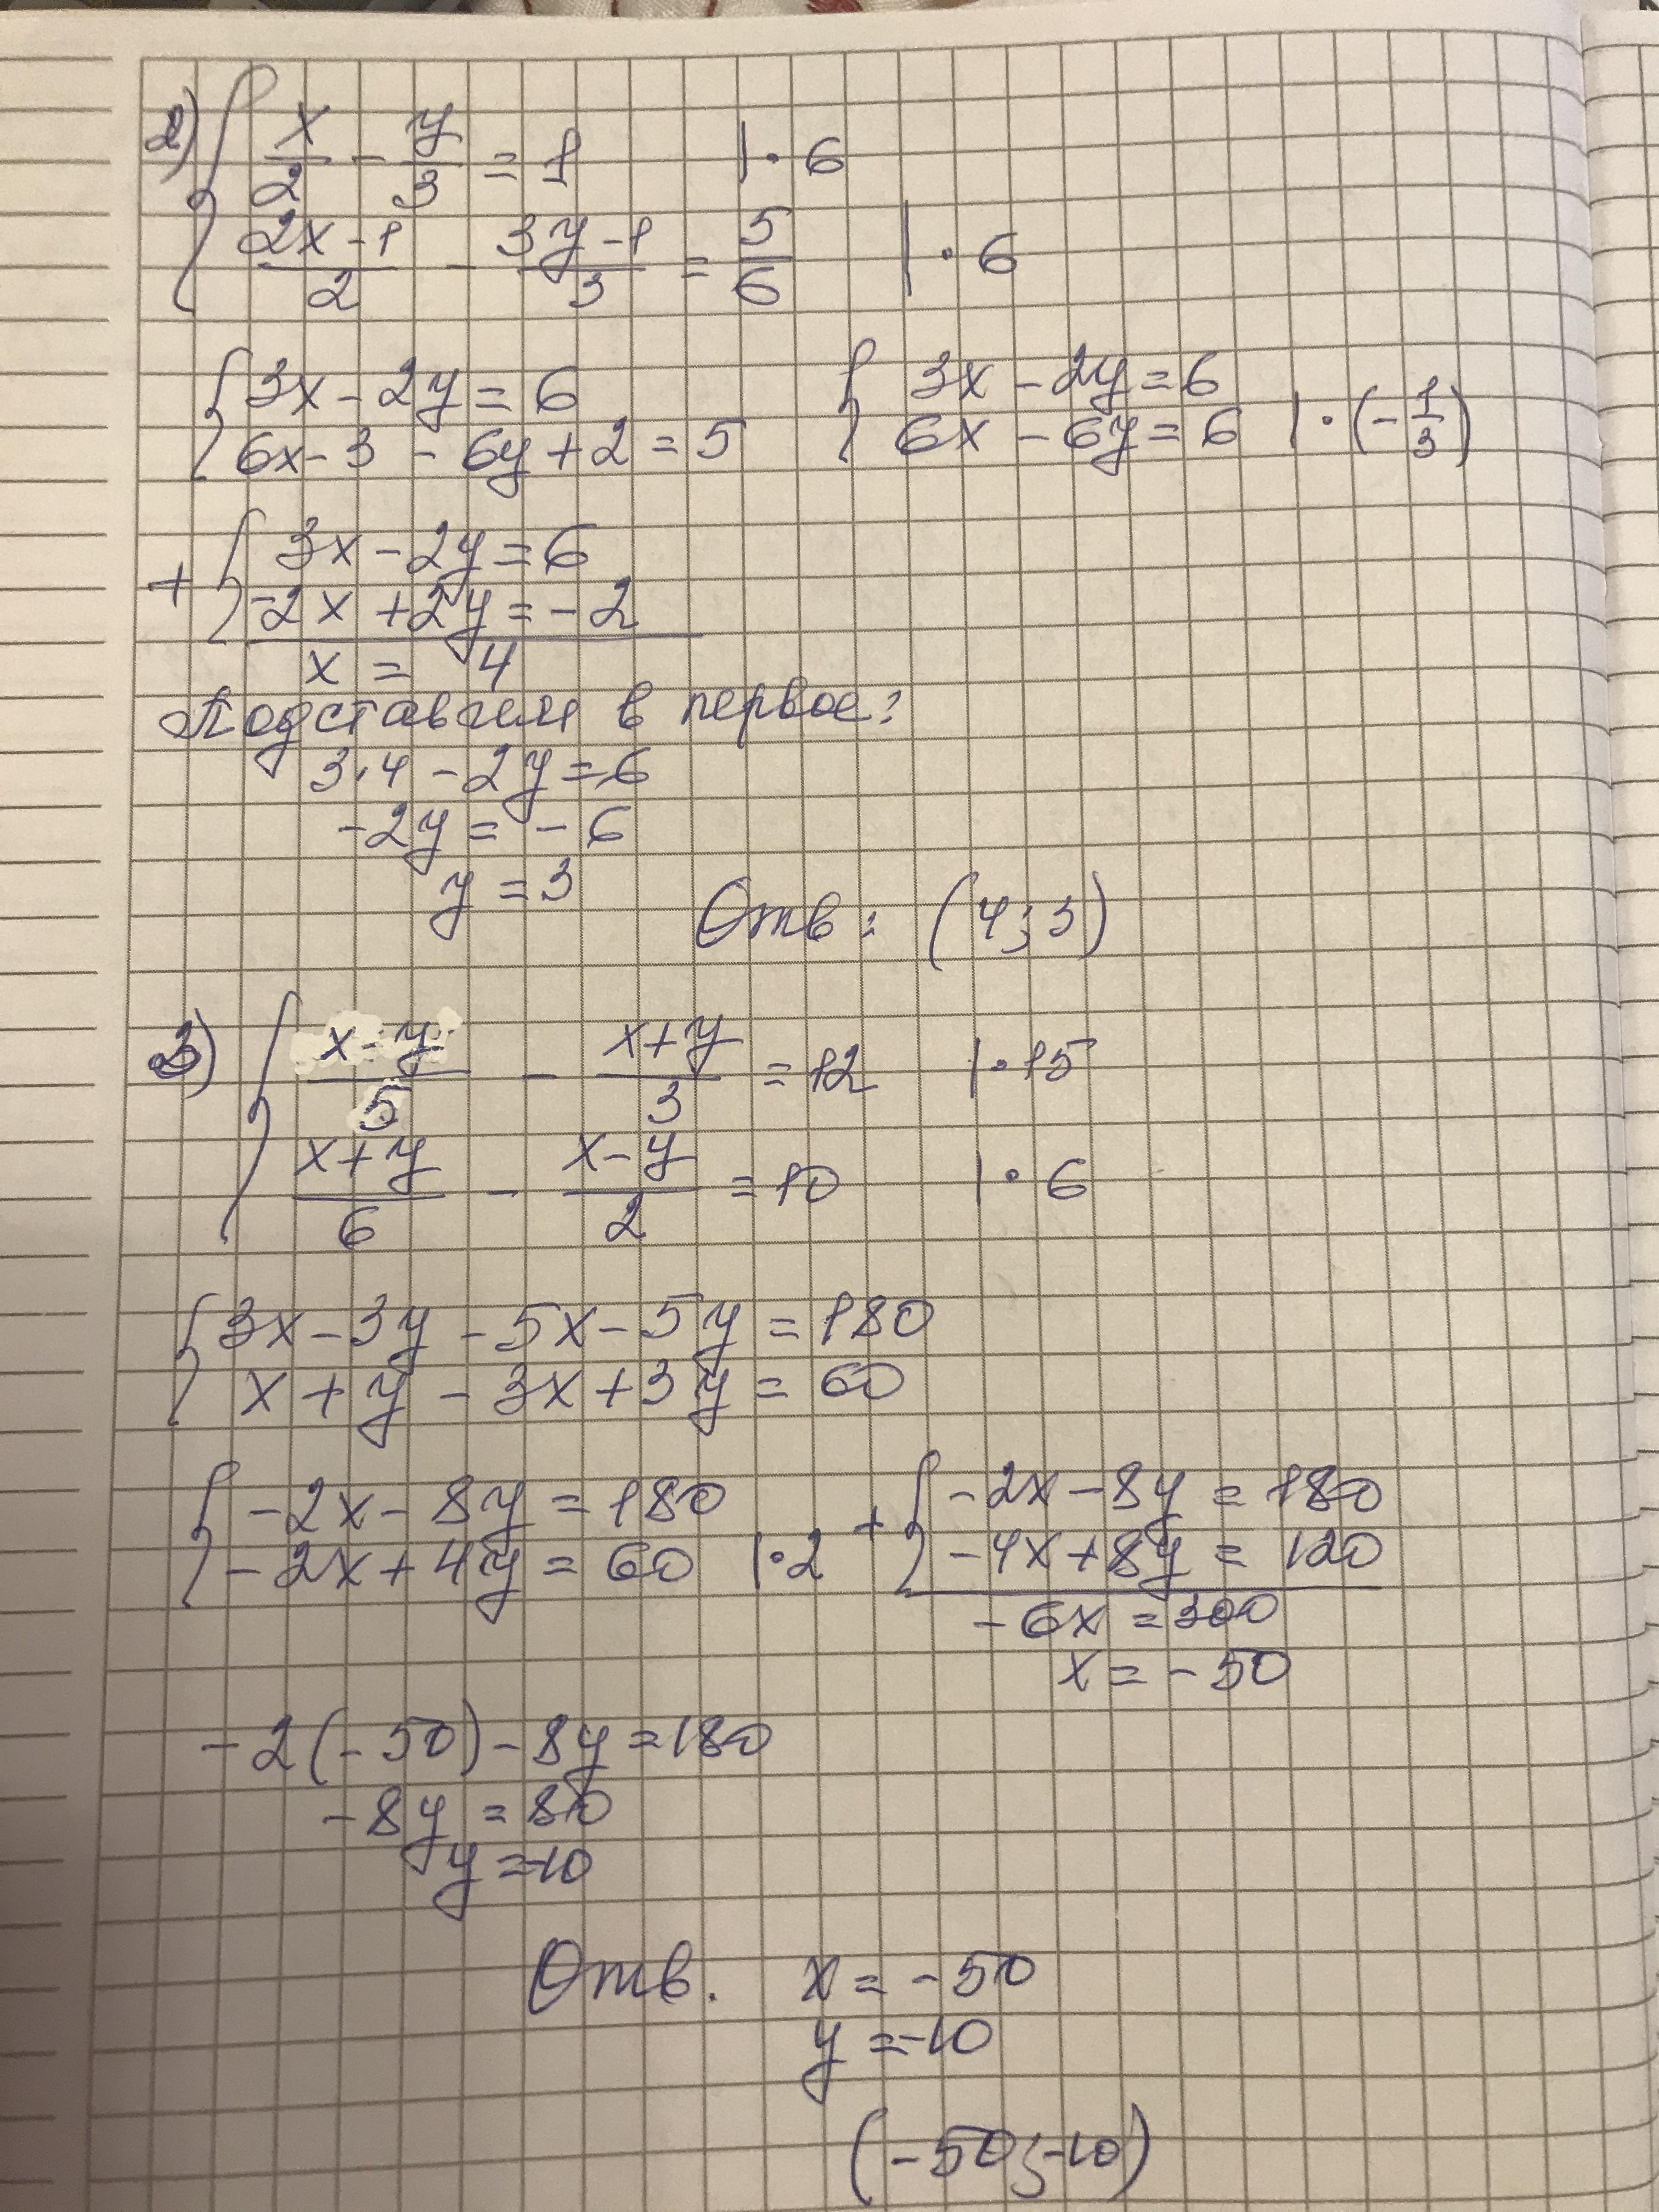 2) { x/2 - y/3 = 1 | · 6
(2x - 1)/2 - (3y - 1)/3 = 5/6 | · 6
{ 3x - 2y = 6 { 3x - 2y = 6
6x - 3 - 6y + 2 = 5 6x - 6y = 6 | · (-1/3)
+ { 3x - 2y = 6
-2x + 2y = -2
x = 4
Подставим в первое:
3·4 - 2y = 6
-2y = -6
y = 3
Отв: (4; 3)
3) { (x - y)/5 - (x + y)/3 = 12 | · 15
(x + y)/6 - (x - y)/2 = 10 | · 6
{ 3x - 3y - 5x - 5y = 180
x + y - 3x + 3y = 60
{ -2x - 8y = 180 + { -2x - 8y = 180
-2x + 4y = 60 | · 2 -4x + 8y = 120
-6x = 300
x = -50
-2(-50) - 8y = 180
-8y = 80
y = -10
Отв. x = -50
y = -10
(-50; -10)